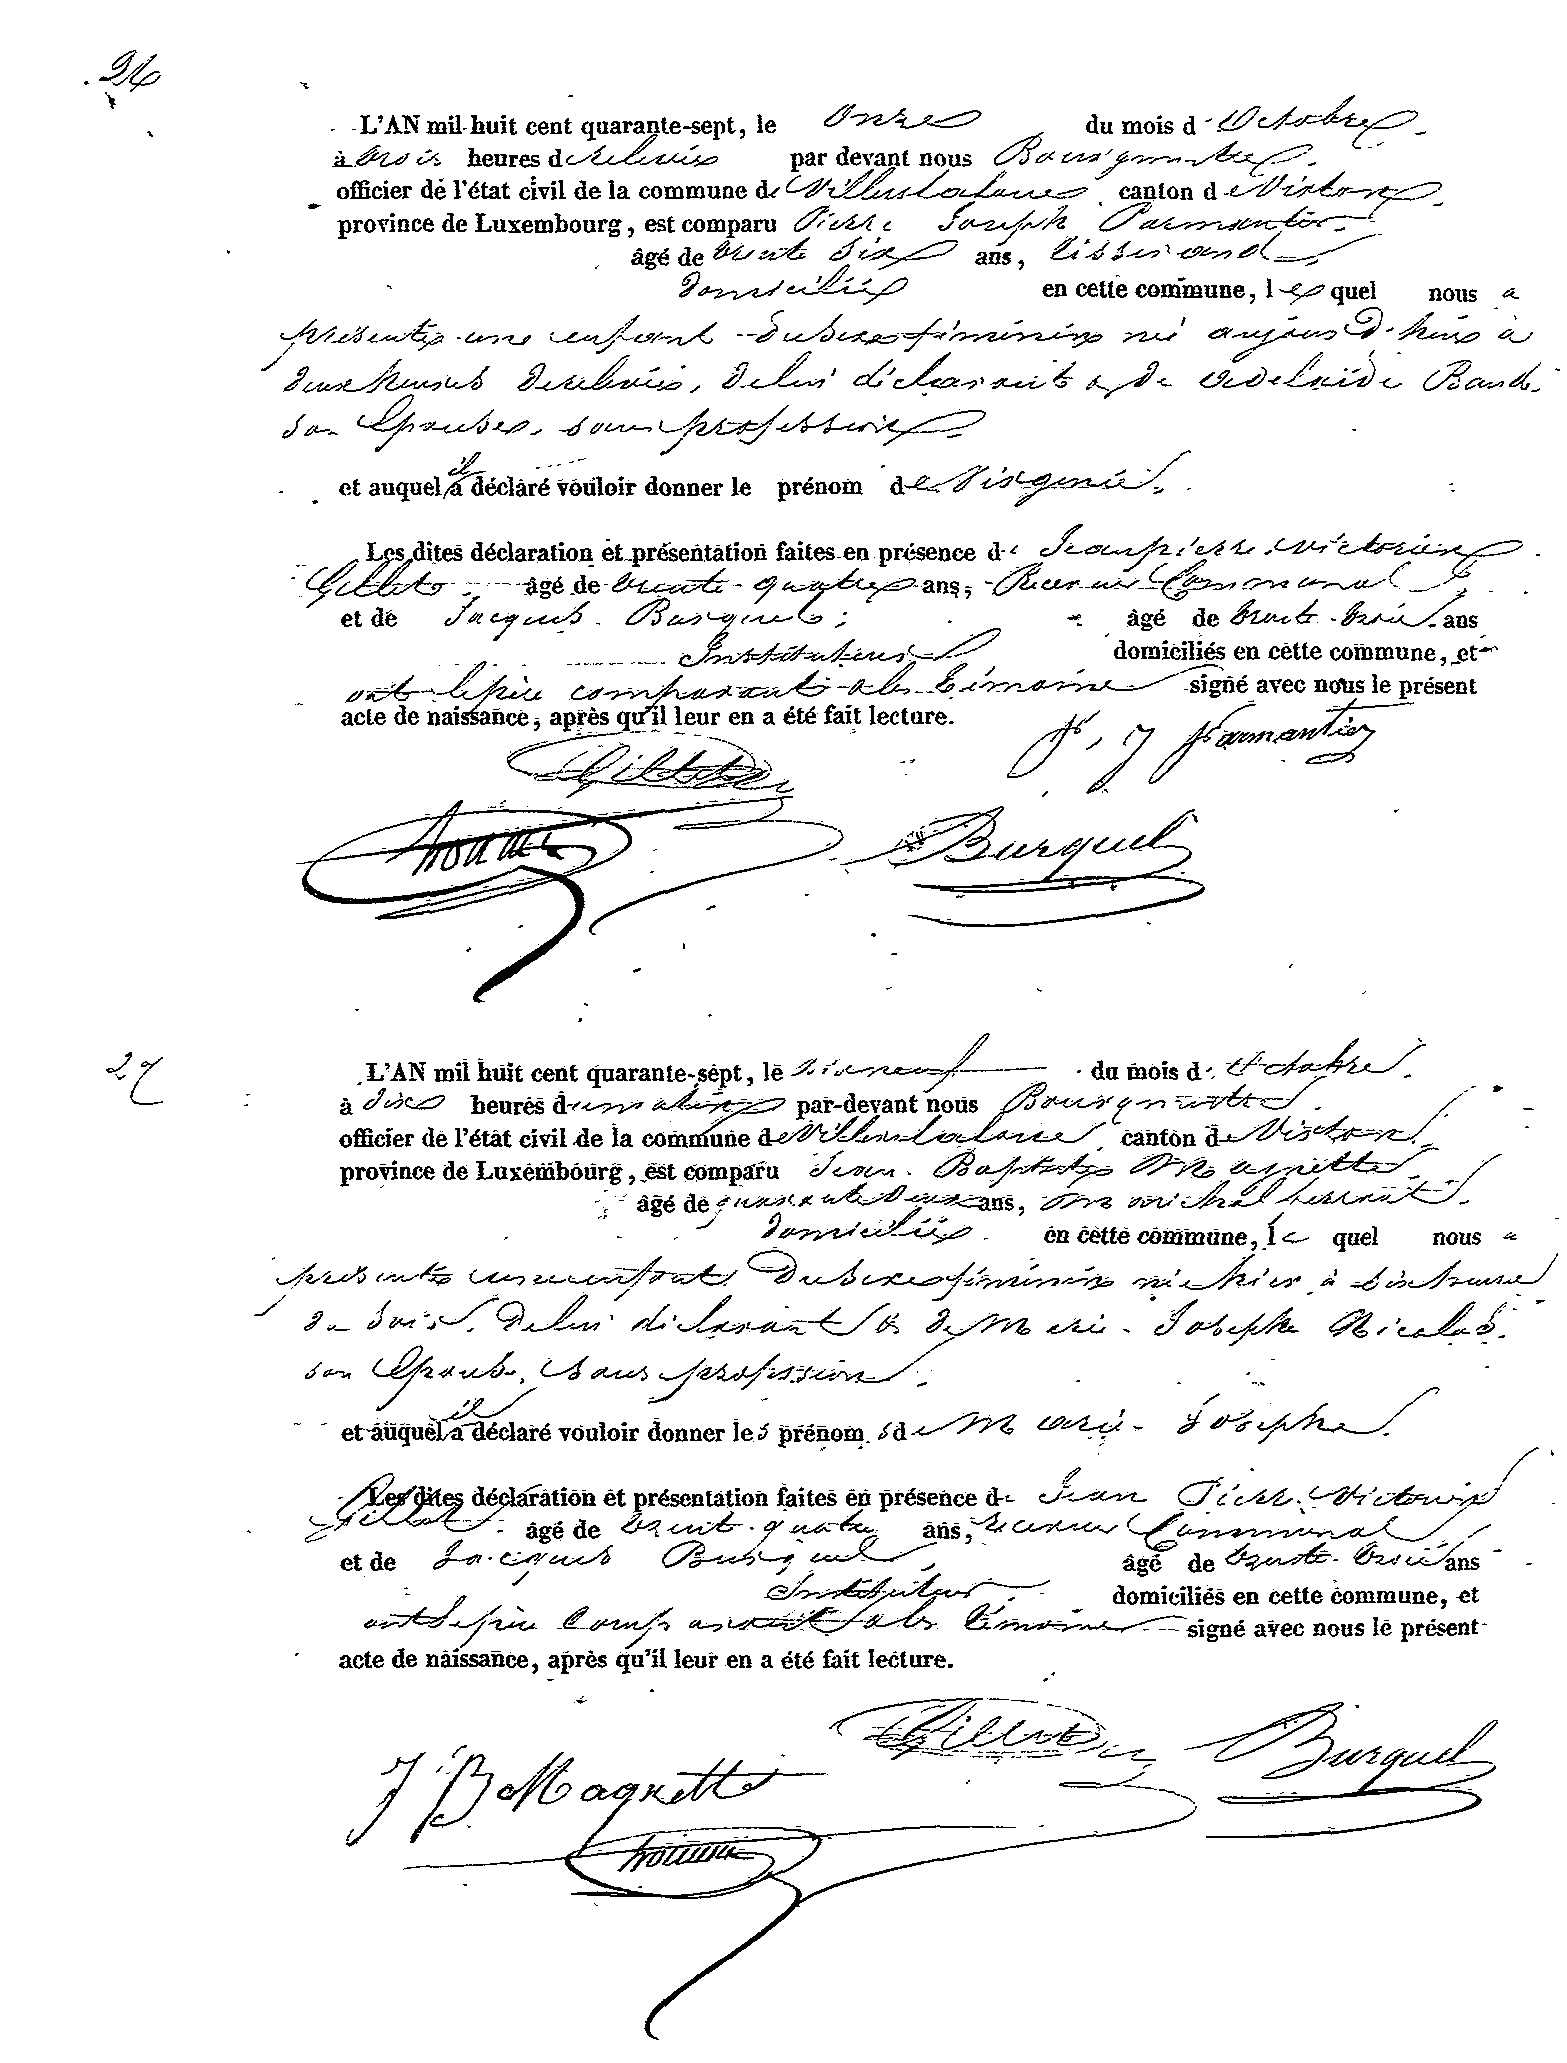 26
L'AN mil huit cent quarante-sept, le Onze du mois d'Octobre
à trois heures de relevée par devant nous Bourgmestre
officier de l'état civil de la commune de Villersla loue canton de Virton
province de Luxembourg, est comparu Pierre Joseph Parmentier
âgé de trente six ans, tisserand
domicilié en cette commune, lequel nous a
présenté une enfant du sexe féminin né aujourd'hui à
deux heures de relevée, de lui déclarant & de Adelaïde Baud
son Epouse, sans profession
et auquel il a déclaré vouloir donner le prénom de Virginie.
Les dites déclaration et présentation faites en présence de Jean pierre Victorien
Gillet âgé de trente-quatre ans, Receveur Communal
et de Jacques Burquel, âgé de trente-trois ans
Instituteur domiciliés en cette commune, et
ont le père comparant & les témoins signé avec nous le présent
acte de naissance, après qu'il leur en a été fait lecture.
P. J Parmantier
Gillet
Burquel
27
L'AN mil huit cent quarante-sept, le dixneuf du mois d'Octobre
à dix heures du matin par-devant nous Bourgmestre
officier de l'état civil de la commune de Villersla loue canton de Virton
province de Luxembourg, est comparu Jean Baptiste Magnette
âgé de quarante deux ans, Maréchal ferrant
domicilié en cette commune, le quel nous a
présenté une enfant du sexe féminin né hier à six heures
du soir, de lui déclarant & de Marie-Josephe Nicolas
son Epouse, sans profession
et auquel il a déclaré vouloir donner les prénoms de Marie-Josephe.
Les dites déclaration et présentation faites en présence de Jean Pierre Victorien
Gillet âgé de trente-quatre ans, receveur Communal
et de Jacques Burquel, âgé de trente-trois ans
Instituteur domiciliés en cette commune, et
ont le père comparant & les témoins signé avec nous le présent
acte de naissance, après qu'il leur en a été fait lecture.
Gillet Burquel
J B Magnette